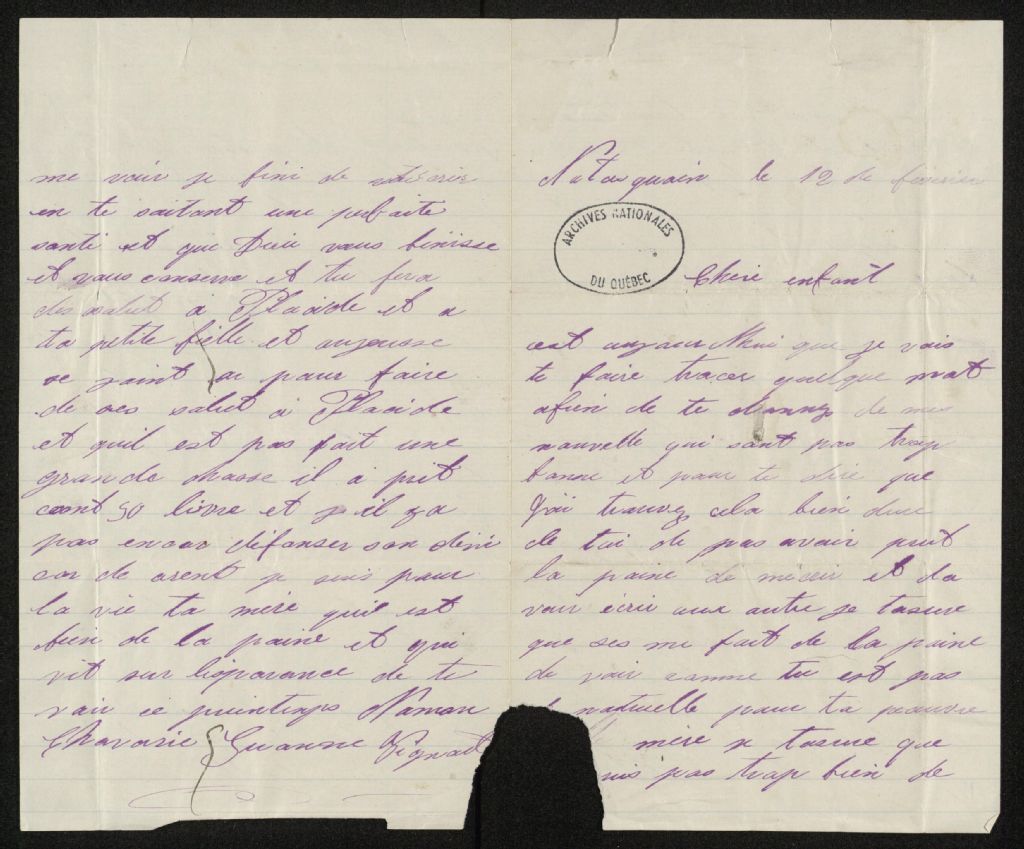 Natasquain le 12 de fevrier
ARCHIVES NATIONALES
DU QUÉBEC
Cheri enfant
cest aujour Nhui que je vais
te faire tracer quelque mot
afin de te donnez de mes
nouvelle qui sont pas trop
bonne et pour te dire que
j'ai trouvez cela bien dur
de toi de pas avoir prit
la paine de mecrir et da
voir écri aux autre je tasure
que ses me fait de la paine
de voir comme tu est pas
naturelle pour ta pauvre
mère je tasure que
uis pas trop bien de
me voir je fini de
en te soitant une parfaite
santi et que Dieu vous binisse
et vous conserve et tu fera
des salut a Placide et a
ta petite fielle et
se joint a pour faire
de ses salut a Placide
et quil est pas fait une
grande chasse il a prit
cent 50 livre et il ya
pas encor défanser son deni
car de arent je suis pour
la vie ta mère quil est
bien de la paine et qui
vit sur lesparance de te
voir ce printemps Maman
Chavarie Suzanne Vignault